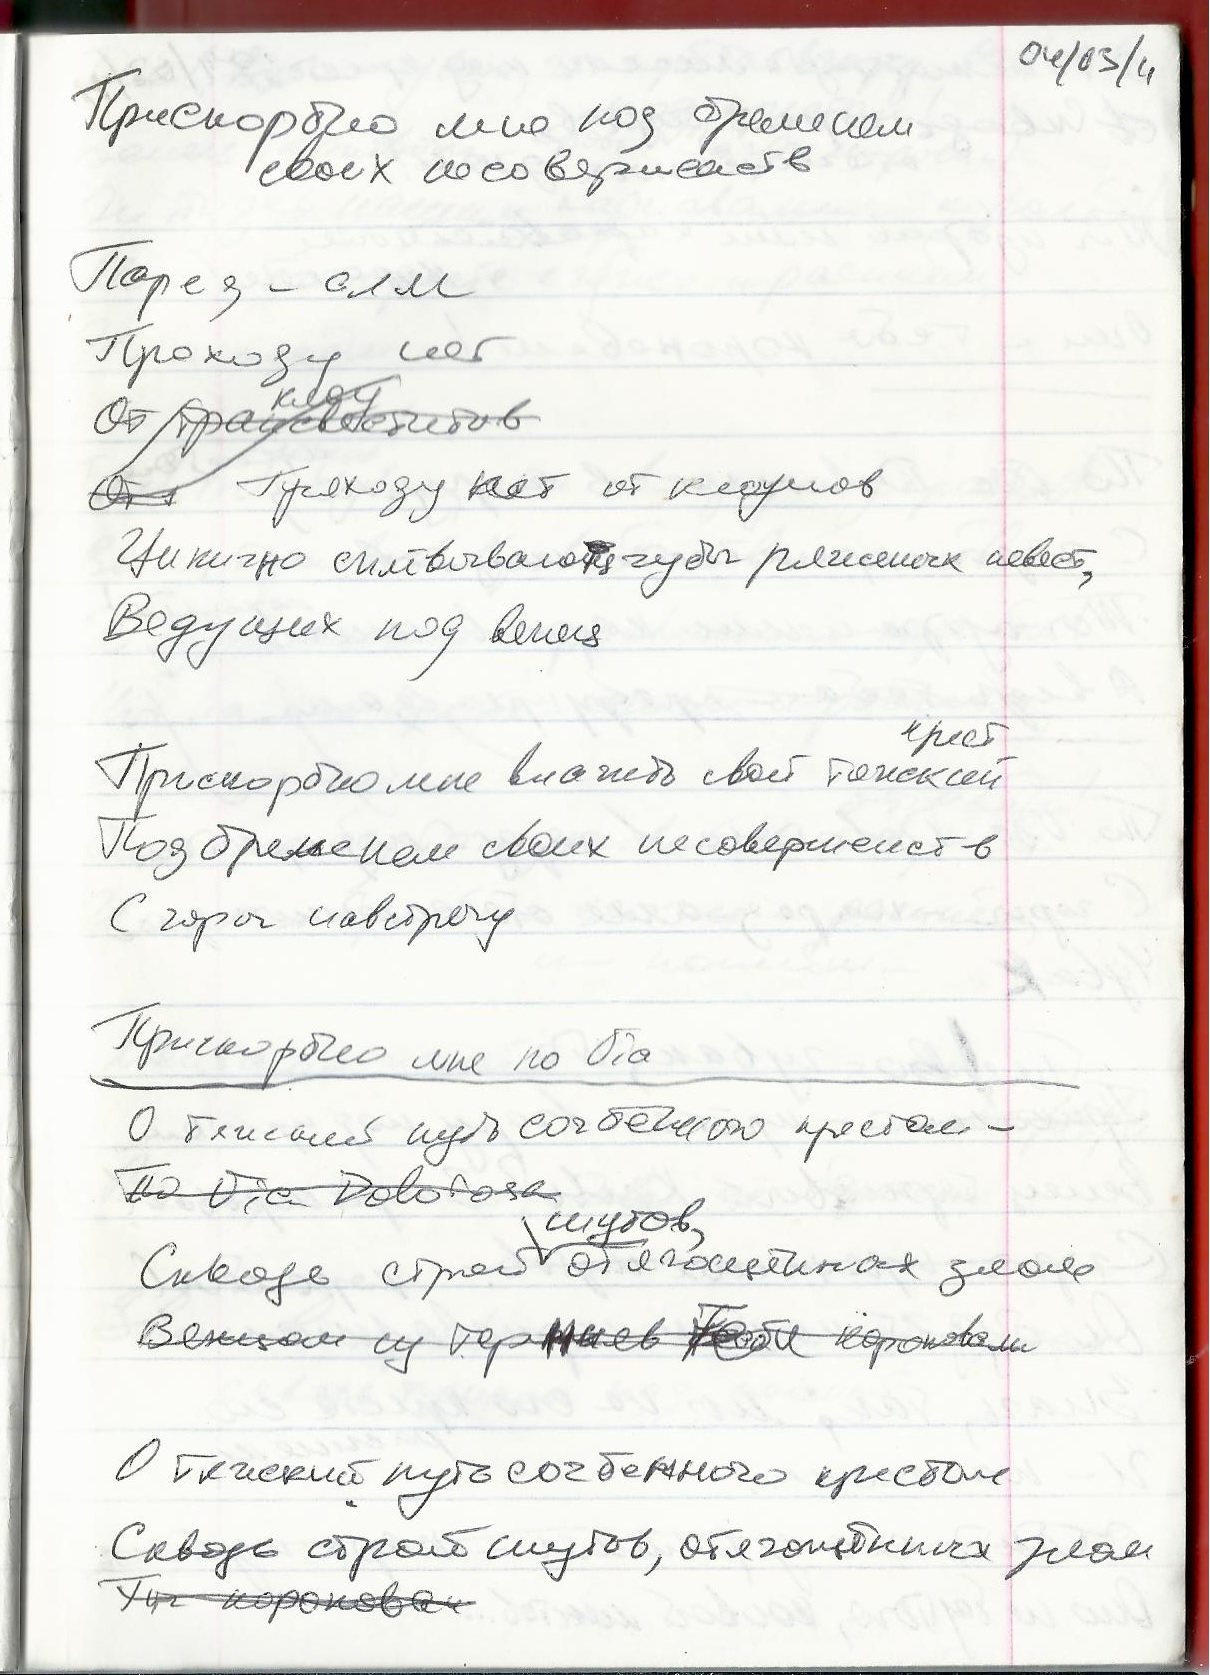 04/03/11
Прискорбно мне под бременем
своих несовершенств
Парез - слм
Проходу нет
клоу
От трансвеститов
От Проходу нет от клоунов
Цинично сшивывают губы ряженых невест,
Ведущих под венец
крест
Прискорбно мне влачить свой тяжский
Под бременем своих несовершенств
С горы навстречу
Прискорбно мне по Via
О тяжский путь согбенного крестом -
По Via Dolorosa
шутов,
Сквозь строй отягощённых злом
Венцом из терниев Тебя короновали
О тяжский путь согбенного крестом
Сквозь строй шутов, отягощённых злом
Ты коронован